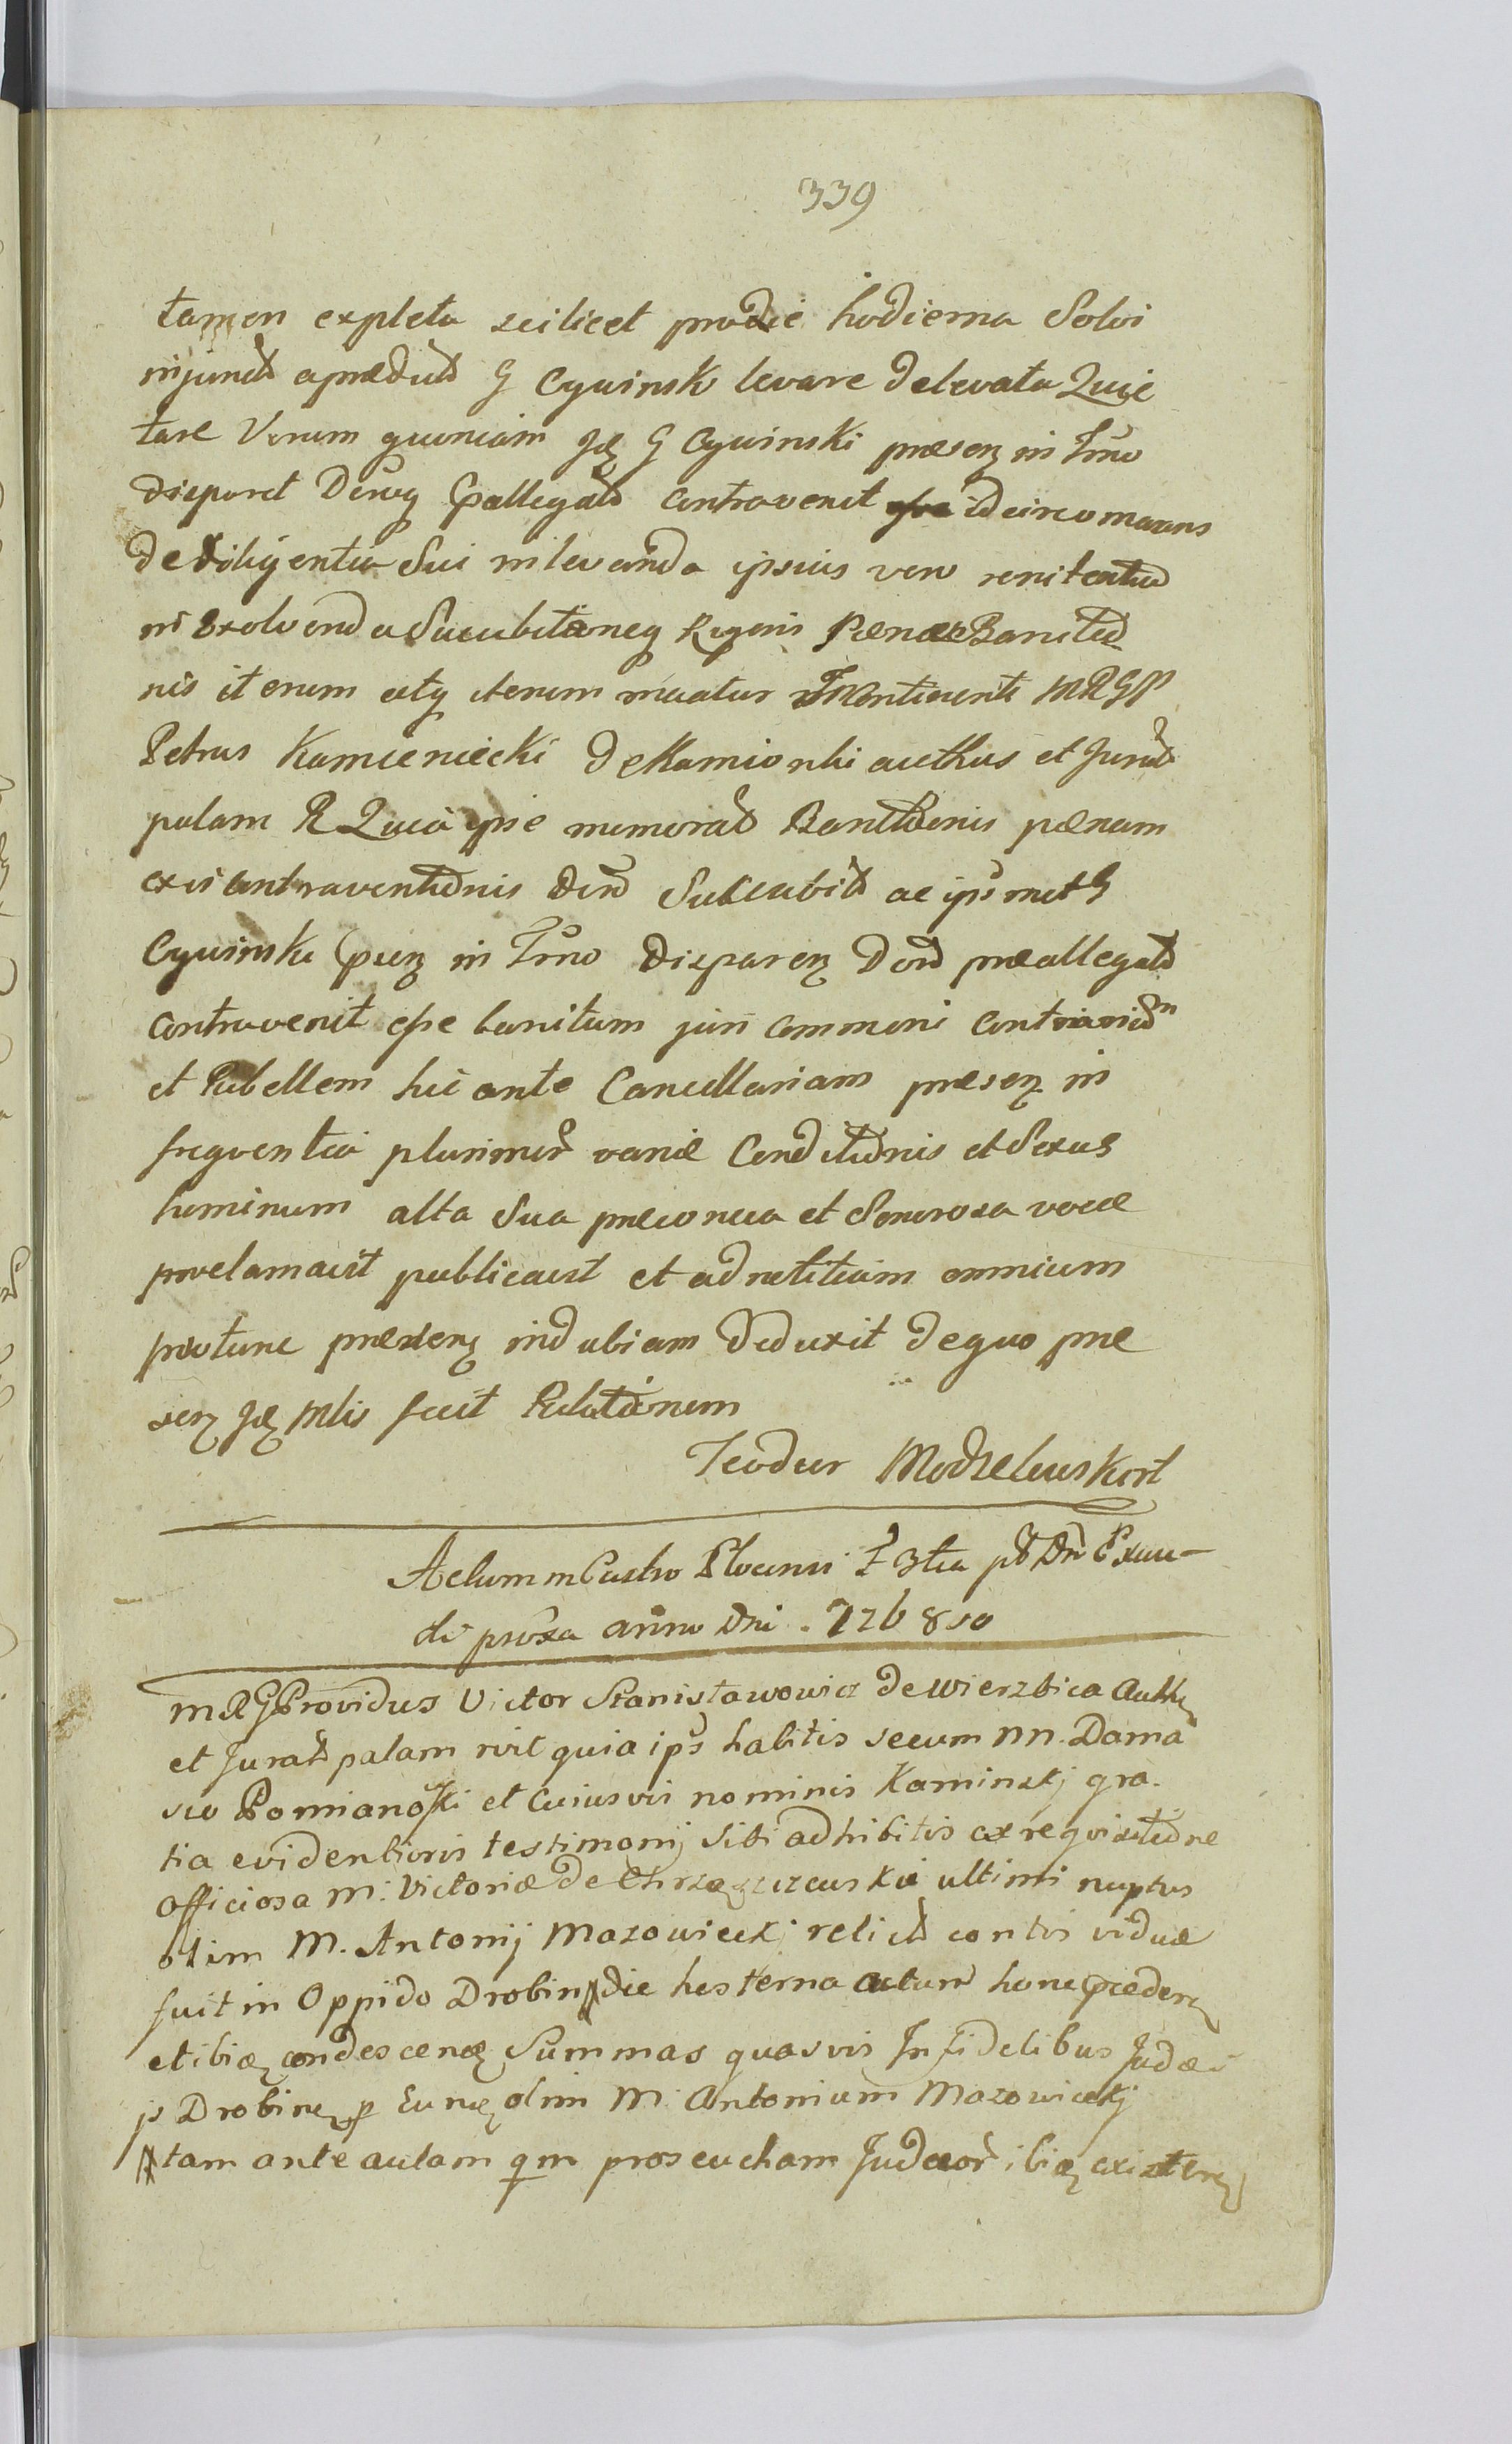 339
tamen expleta scilicet prodie hodierna Solvi
injunct apraedict G Cywinski levare Delevata Quie
tare Verum quoniam Jdẽ G Cywinski praesenẽ in Trno
disparet contravenit idcirco manens
De diligentia Sui inlevanda ipsius vero renitentia
in Exolvenda Sucubitioneq Rigoris Paenae Banitio
nis iterum atq iterum
Petrus Kamieniecki DeKamionki authus et Jurat
palam R Quia ipse memorat Banitionis paenam
exis contraventionis Den Sucubit ac ipsmet G
Cywinski in Trno Disparenẽ Den praeallegat
contravenit esse banitum juri communi contrarium
et Rebellem hic ante Cancellariam praesenẽ in
frequentia plurimor variae Conditionis et Sexus
hominum alta Sua praeconica et Sonorosa voce
proclamavit publicavit et adnotitiam omnium
protunc praesenẽ indubiam deduxit dequo prae
senẽ Jdẽ Mlis fecit Relationem
Teodur
Actum in Castro Plocensi
di proxa anno Dni .
M R G Providus Victor Stanisławowicz De Wierzbica Auth
et Jurat palam rvit quia ips habitis secum nn. Dama
sco Pomianoski et Cuiusvis nominis Kaminskj gra.
tia evidentioris testimonij Sibi adhibitis ex requisitione
officiosa M. Victoriae De ultimi nuptus
olim M. Antonij Mazowieckj relict contis viduae
fuit in Oppido Drobin die hesterna actum hunc praeden
et ibiẽ condescenẽ Summas quasvis Infidelibus Judae
js Drobinẽ p Eundẽ olim M. Antonium Mazowieckj
tam ante aulam qm proseucham Judaeor ibiẽ existenẽ